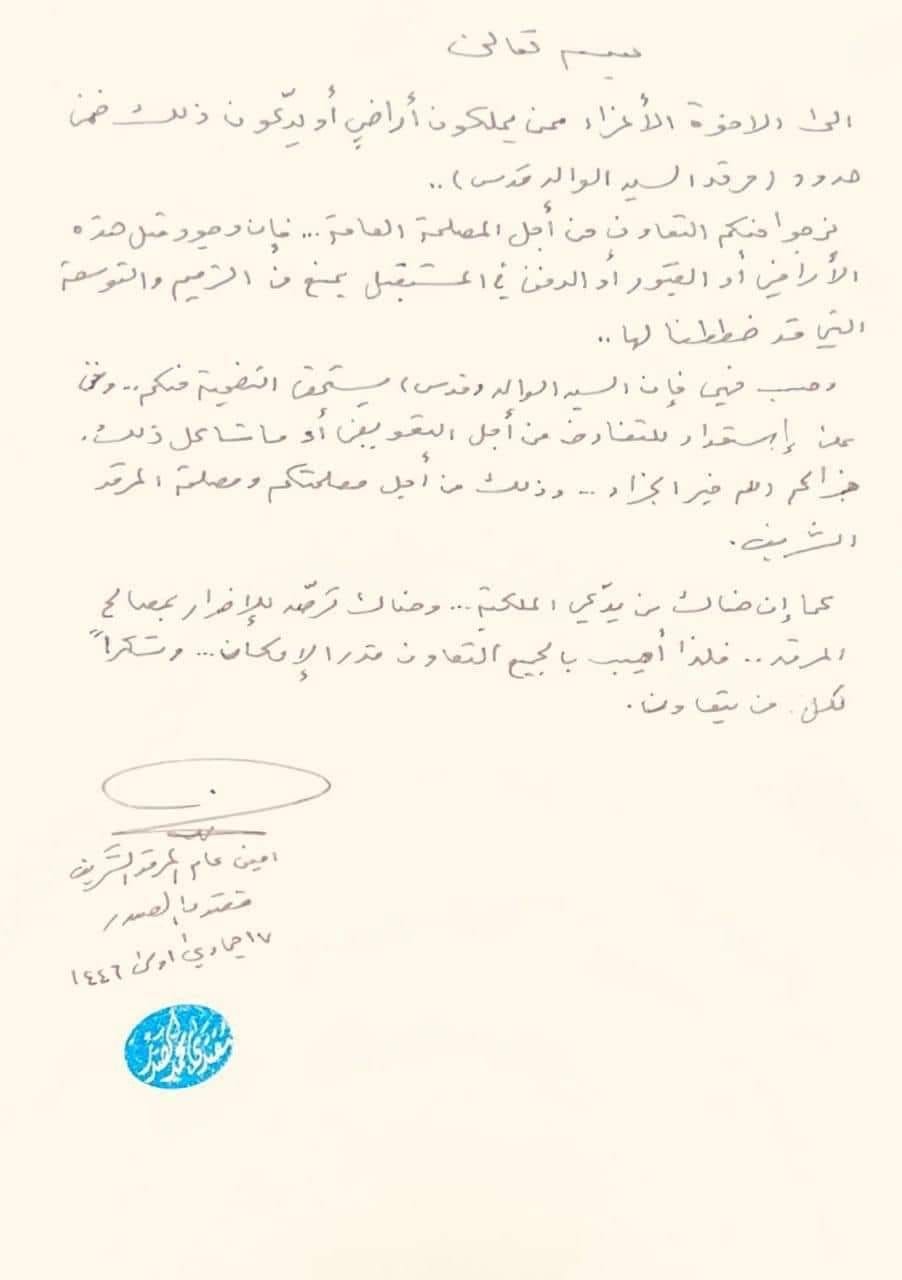 بسمه تعالى
الى الاخوة الأعزاء ممن يملكون أراضي أو يدّعون ذلك ضمن
حدود (مرقد السيد الوالد قدس) ..
نرجوا منكم التعاون من أجل المصلحة العامة ... فإن وجود مثل هذه
الأراضي أو القبور أو الدفن في المستقبل يمنع من الترميم والتوسعة
التي قد خططنا لها ..
وحسب فهمي فإن السيد الوالد (قدس) يستحق التضحية منكم .. ونحن
على إستعداد للتفاوض من أجل التعويض أو ما شاكل ذلك.
جزاكم الله خير الجزاء .. وذلك من أجل مصلحتكم ومصلحة المرقد
الشريف.
كما إن هناك من يدّعي الملكية ... وهناك ترصّد للإضرار بمصالح
المرقد .. فلذا أهيب بالجميع التعاون قدر الإمكان ... وشكراً
لكل من يتعاون.
امين عام المرقد الشريف
مقتدى الصدر
١٧ جمادي اولى ١٤٤٦
مقتدى محمد الصدر